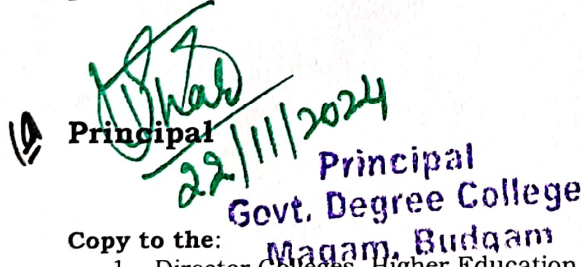 Principal
22/11/2024
Principal
Govt. Degree College
Magam, Budgam
Copy to the:
1. Director Colleges, Higher Education